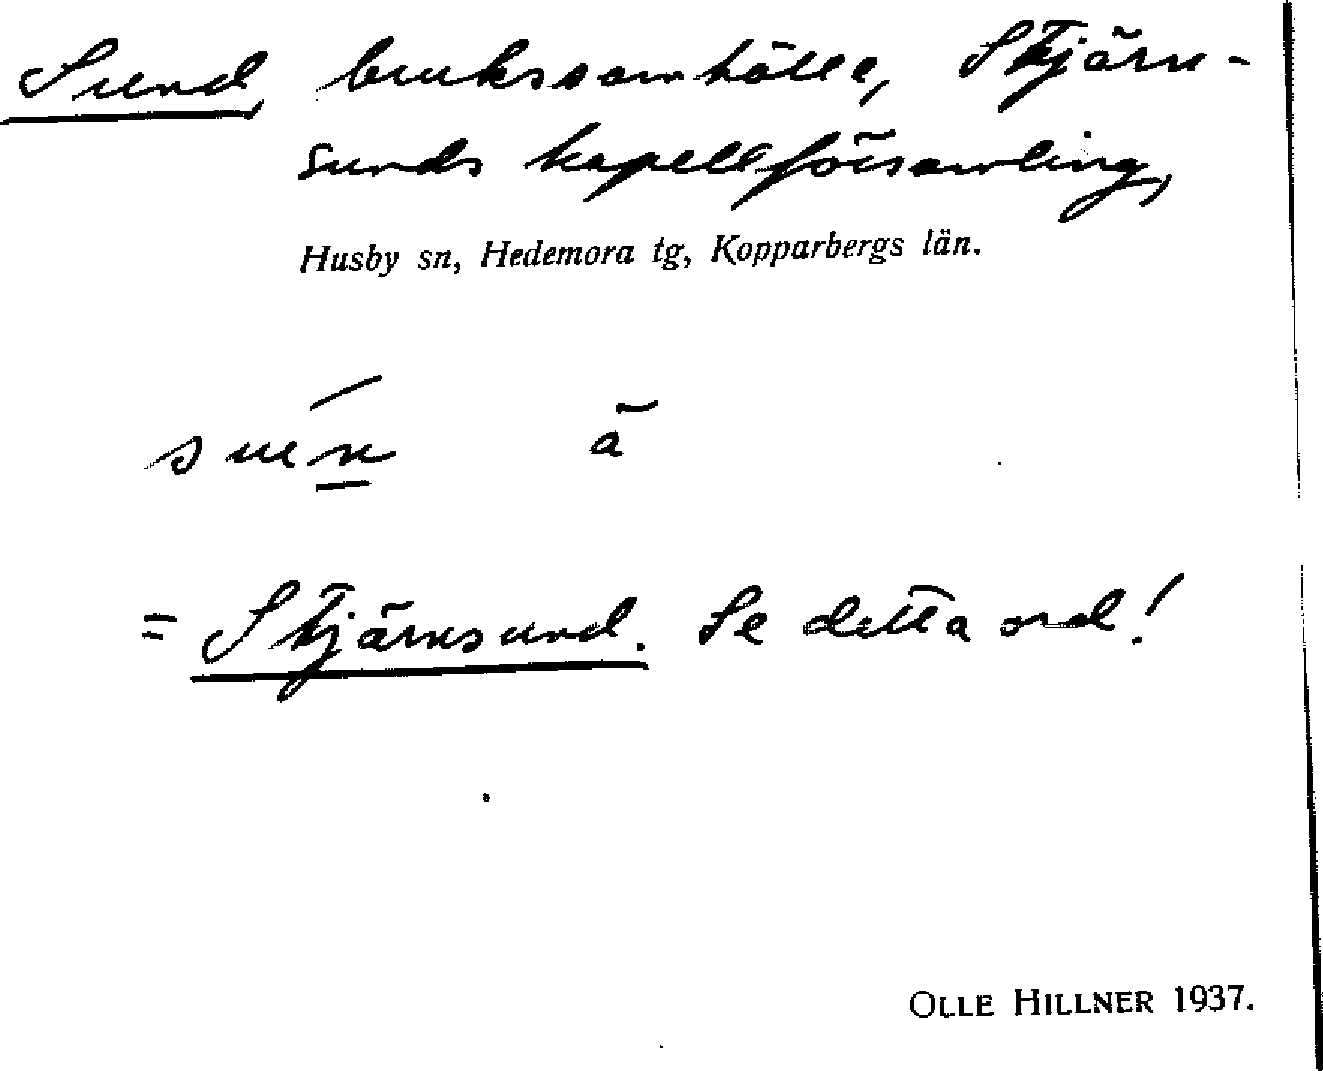 Sund, brukssamhälle, Stjärn-
sunds kapellförsamling,
Husby sn, Hedemora tg, Kopparbergs län.
sun ä
= Stjärnsund. Se detta ord!
OLLE HILLNER 1937.